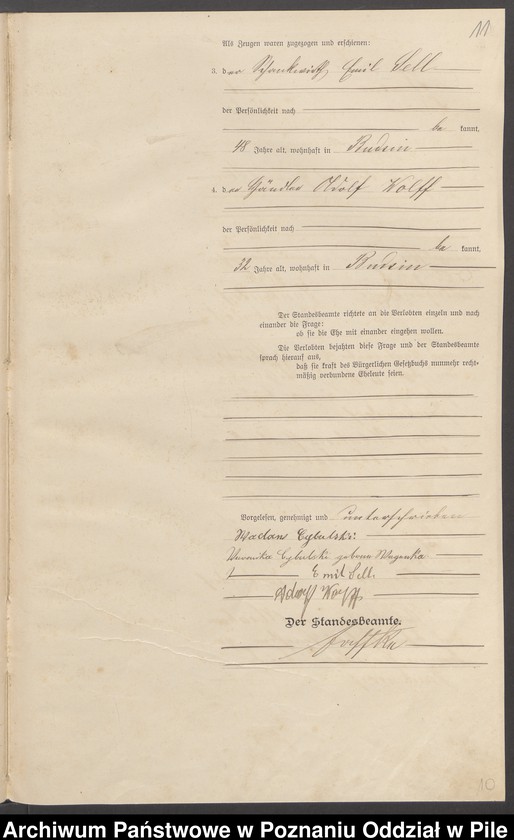 11
Als Zeugen waren zugezogen und erschienen:
3. der Schankwirth Emil Sell
der Persönlichkeit nach
be kannt,
48 Jahre alt, wohnhaft in Budsin
4. der Händler Adolf Wolff
der Persönlichkeit nach
be kannt,
32 Jahre alt, wohnhaft in Budsin
Der Standesbeamte richtete an die Verlobten einzeln und nach
einander die Frage:
ob sie die Ehe mit einander eingehen wollen.
Die Verlobten bejahten diese Frage und der Standesbeamte
sprach hierauf aus,
daß sie kraft des Bürgerlichen Gesetzbuchs nunmehr recht-
mäßig verbundene Eheleute seien.
Vorgelesen, genehmigt und unterschrieben
Waclaus Cybulski
Weronika Cybulski geborne
Emil Sell
Adolf Wolff
Der Standesbeamte.
10
Archiwum Państwowe w Poznaniu Oddział w Pile